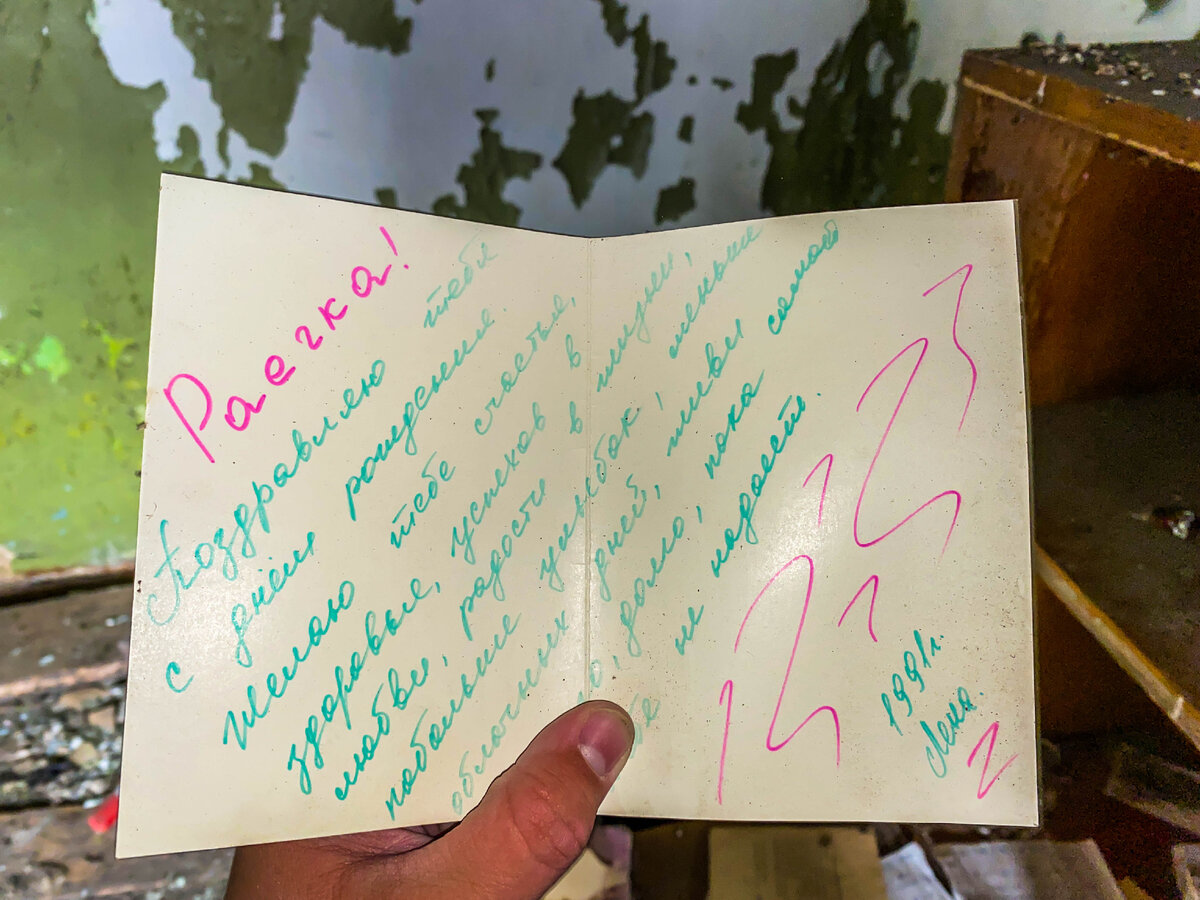 Раечка!
Поздравляю тебя
с днём рождения.
Желаю тебе счастья,
здоровья, успехов в
любви, радости в жизни,
побольше улыбок, меньше
облачных дней, живи
долго, пока самой
не надоест.
1991г.
Лена.